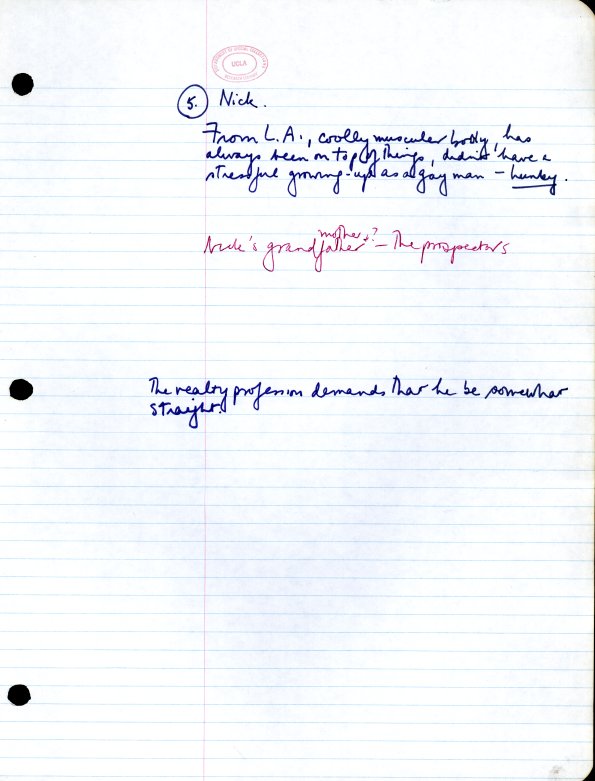 DEPARTMENT OF SPECIAL COLLECTIONS
UCLA
5. Nick.
From L.A., coolly muscular body, has
always been on top of things, didn't have a
stressful growing-up as a gay man – hunky.
mother +?
Nick's grandfather – The prospectors
The realty profession demands that he be somewhat
straight.